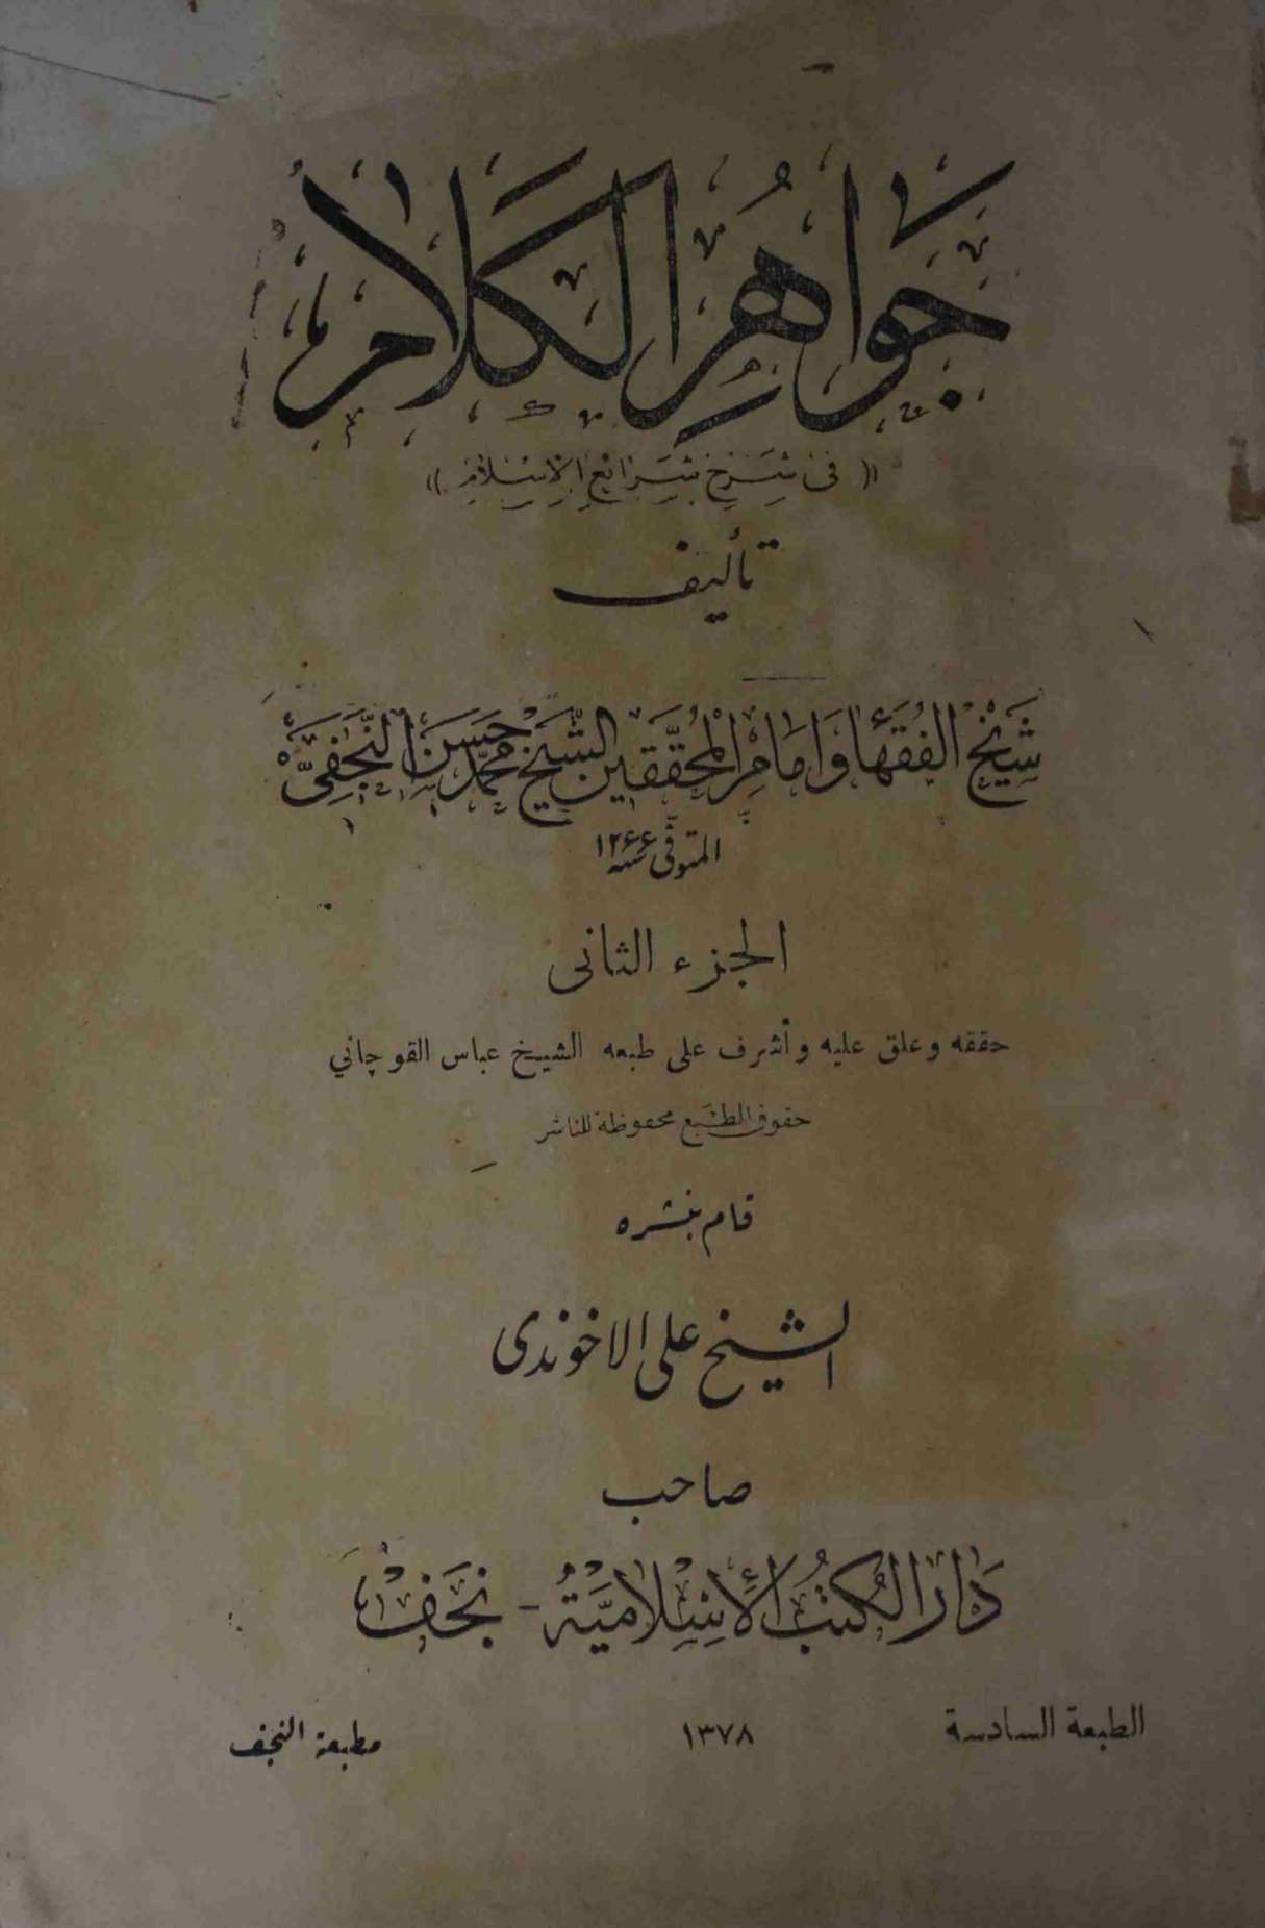 جَواهِرُ الكَلام
(( في شَرْحِ شَرائِعِ الإِسْلامِ ))
تأليف
شَيْخِ الفُقَهَاءِ وَإمَامِ المُحَقِّقِينَ الشَّيخِ مُحَمَّد حَسَن النَّجَفِيّ
المتوفى سنة ١٢٦٦
الجزء الثانى
حققه وعلق عليه وأشرف على طبعه الشيخ عباس القوچاني
حقوق الطبع محفوظة للناشر
قام بنشره
الشيخ على الاخوندى
صاحب
دَارُ الكُتُبِ الأِسْلَامِيَّةُ - نَجَفْ
الطبعة السادسة ١٣٧٨ مطبعة النجف